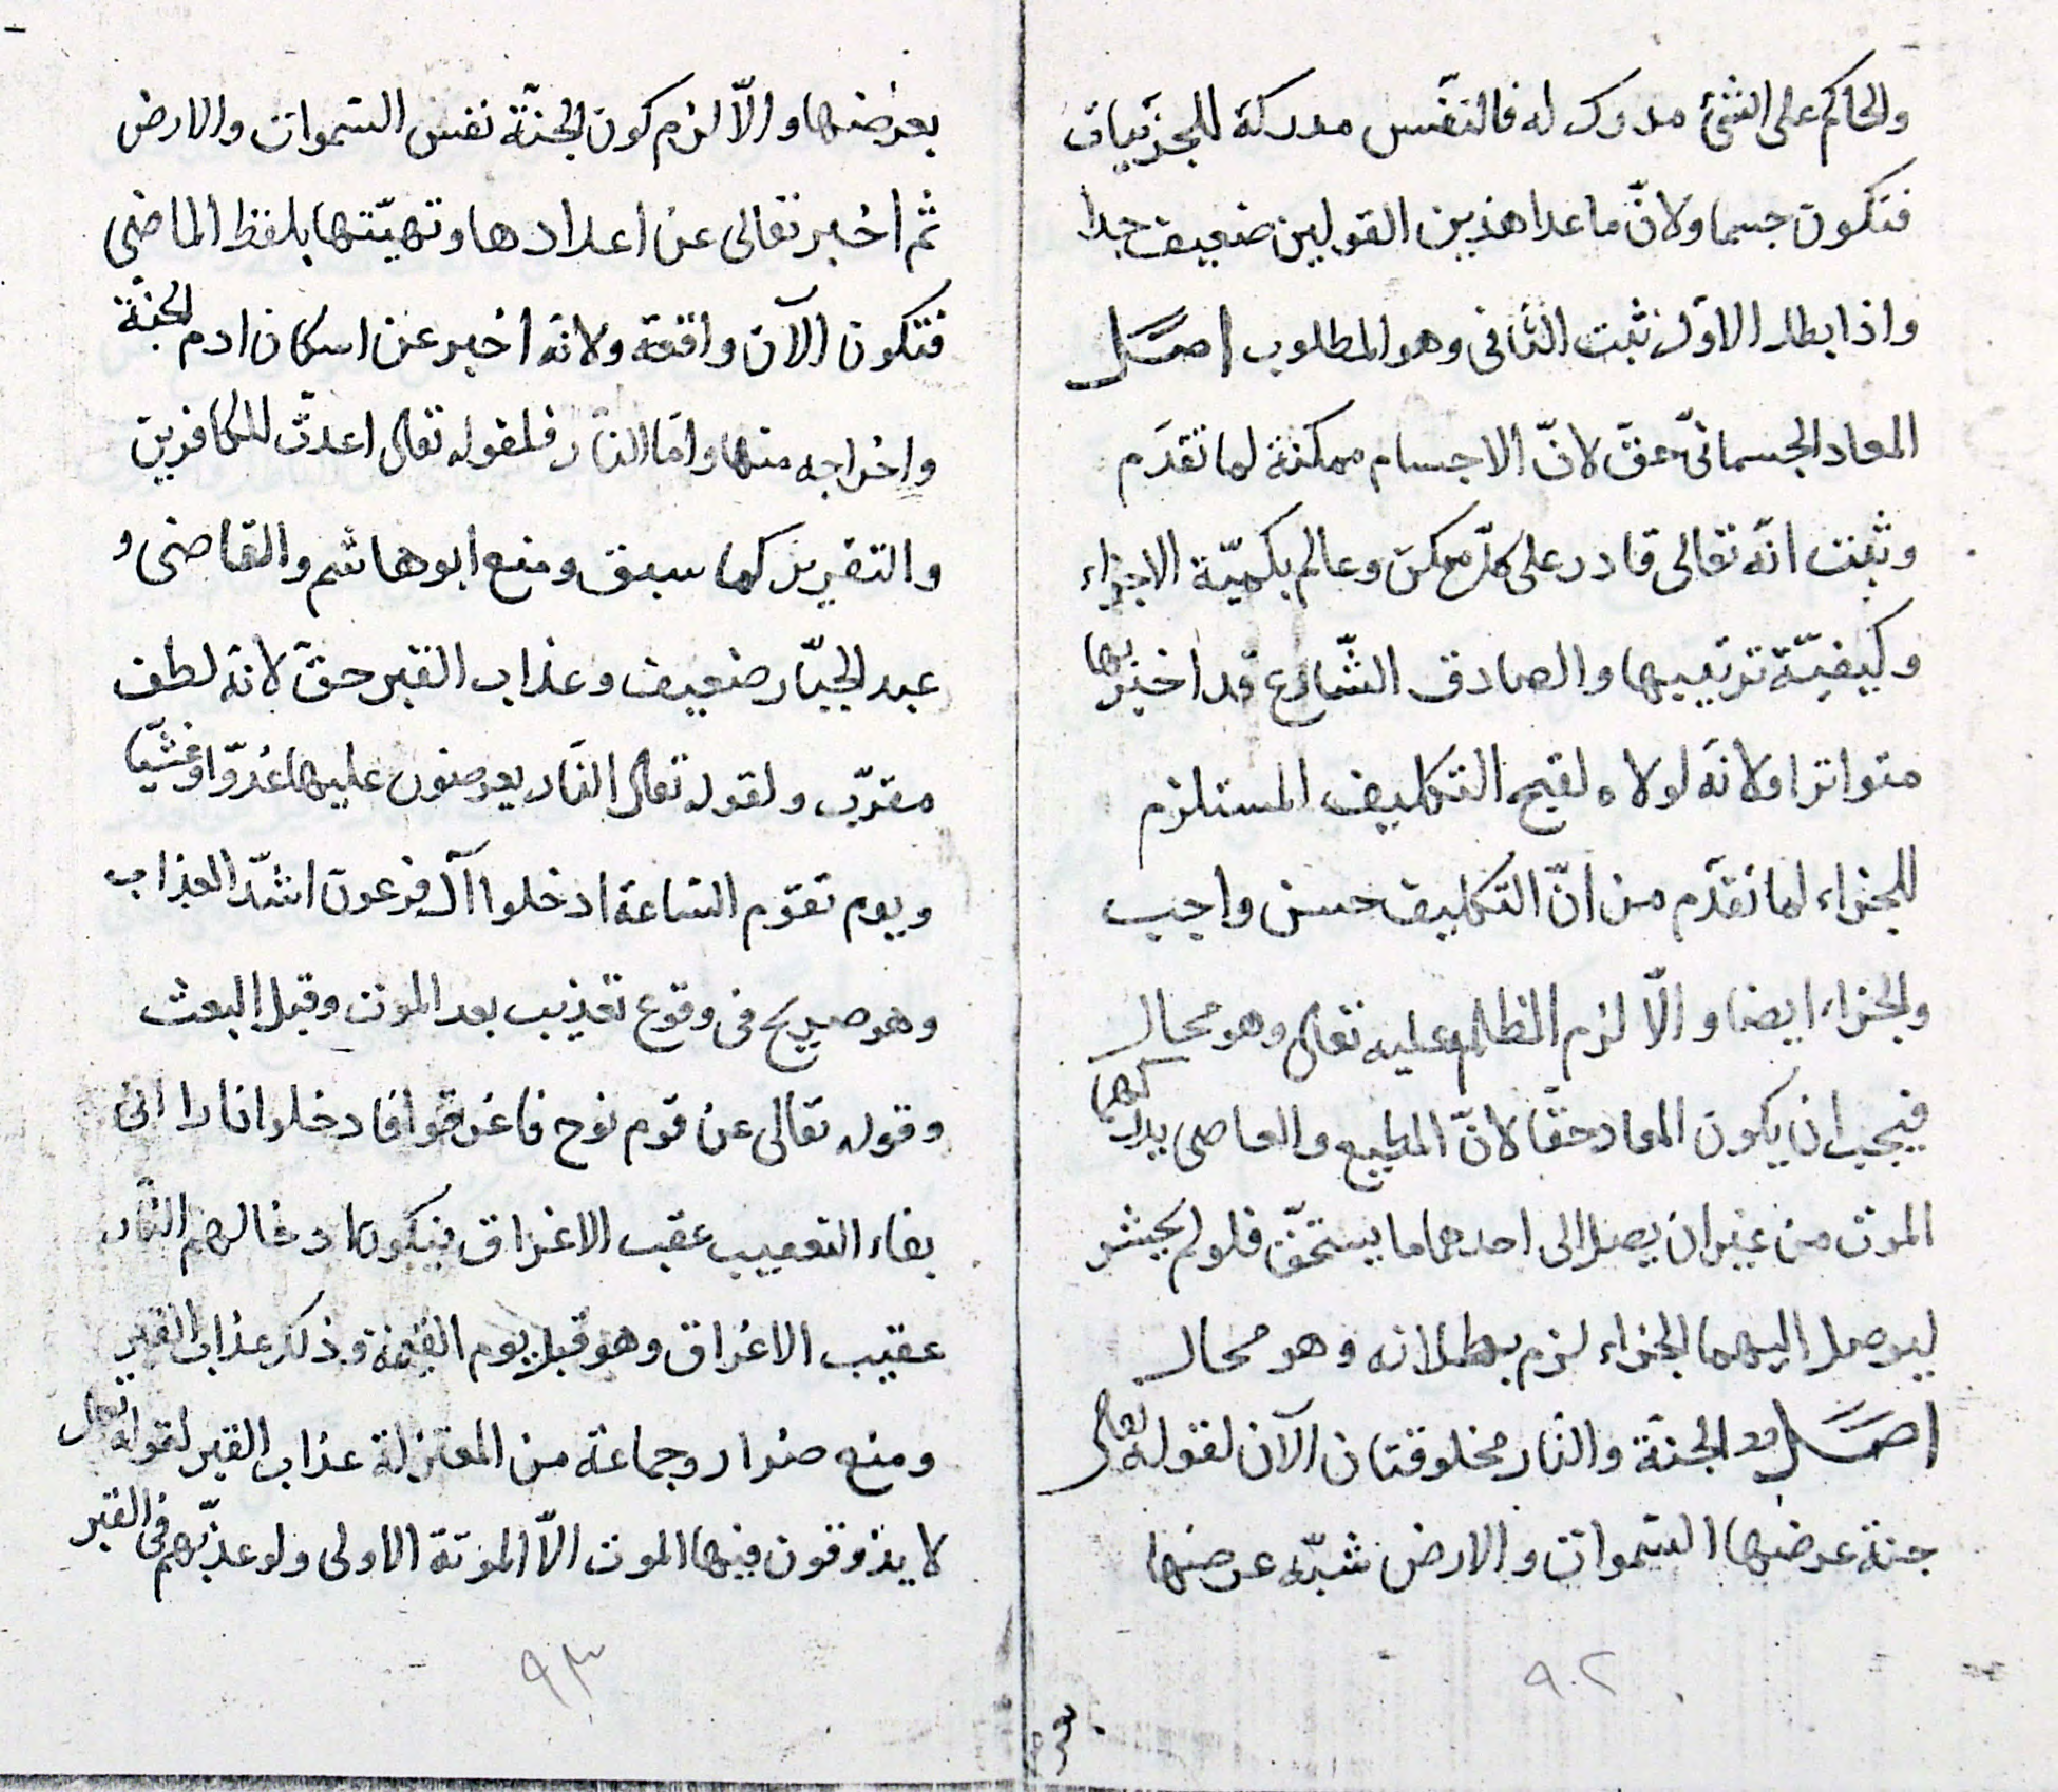 والحاكم على الشئ مدرك له فالنفس مدركة للجزئيات
فتكون جسما ولانّ ما عدا هذين القولين ضعيف جدا
واذا بطل الاوّل ثبت الثانى وهو المطلوب اصــل
المعاد الجسمانىّ حقّ لانّ الاجسام ممكنة لما تقدّم
وثبت انّه تعالى قادر على كلّ ممكن وعالم بكميّة الاجزاء
وكيفيّة ترتيبها والصادق الشّارع قد اخبر بها
متواترا ولانّه لولاه لقبح التكليف المستلزم
للجزاء لما تقدّم من انّ التكليف حسن واجب
والجزاء ايضا والّا لزم الظلم عليه تعالى وهو محال
فيجب ان يكون المعاد حقّا لانّ المطيع والعاصى يدركهما
الموت من غير ان يصل الى احدهما ما يستحقّ فلو لم يحشر
ليوصل اليهما الجزاء لزم بطلانه وهو محال
اصــل الجنّة والنّار مخلوقتان الآن لقوله تعالى
جنة عرضها السّموات والارض شبّه عرضها
بعر
٩٢
بعرضها والّا لزم كون الجنّة نفس السّموات والارض
ثم اخبر تعالى عن اعدادها وتهيّتها بلفظ الماضى
فتكون الآن واقعة ولانّه اخبر عن اسكان ادم الجنّة
واخراجه منها وامّا النّار فلقوله تعالى اعدتّ للكافرين
والتقرير كما سبق ومنع ابو هاشم والقاضى و
عبد الجبّار ضعيف وعذاب القبر حقّ لانّه لطف
مقرّب ولقوله تعالى النّار يعرضون عليها غدوّا وعشيّا
ويوم تقوم السّاعة ادخلوا آل فرعون اشدّ العذاب
وهو صريح فى وقوع تعذيب بعد الموت وقبل البعث
وقوله تعالى عن قوم نوح فاغرقوا فادخلوا نارا اتى
بفاء التعقيب عقب الاغراق فيكون ادخالهم النّار
عقيب الاغراق وهو قبل يوم القيمة وذلك عذاب القبر
ومنع ضرار وجماعة من المعتزلة عذاب القبر لقوله تعالى
لا يذوقون فيها الموت الّا الموتة الاولى ولو عذّبهم فى القبر
٩٣